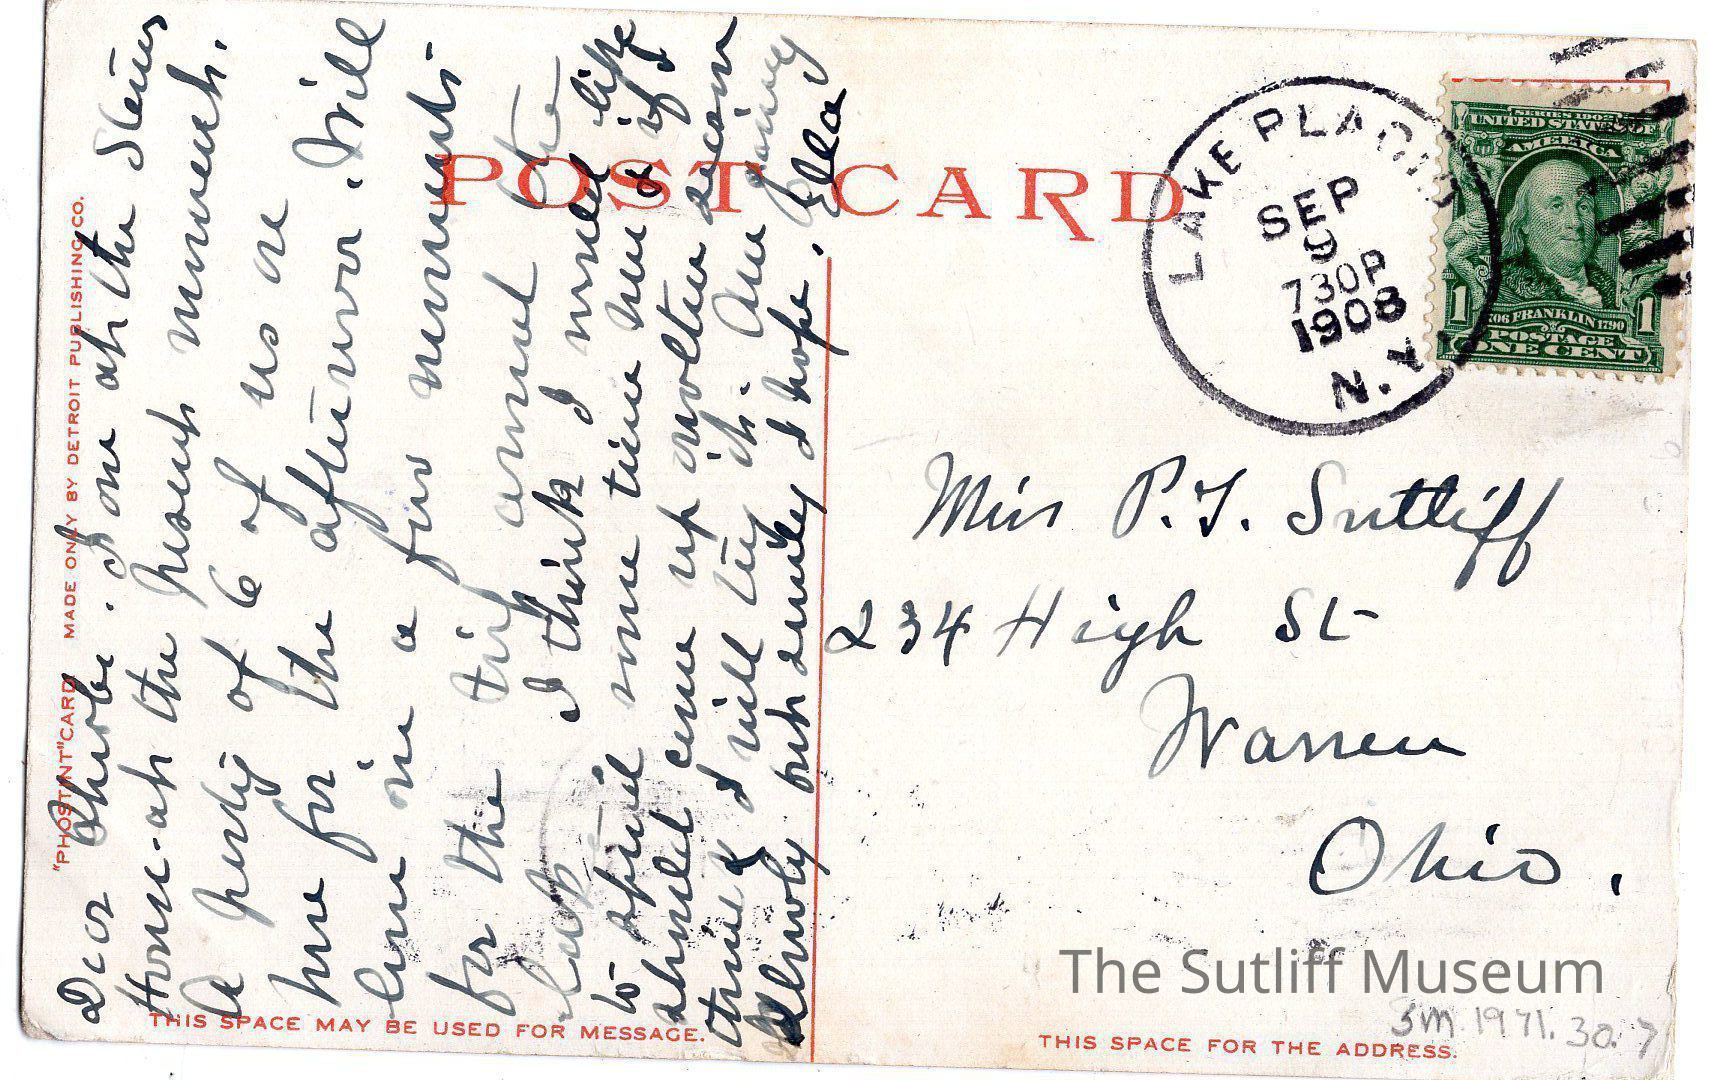 POST CARD
"PHOSTINT" CARD MADE ONLY BY DETROIT PUBLISHING CO.
Dear Phoebe. I am at the Steves
House - at the present moment.
A party of 6 of us are
here for the afternoon. Will
leave in a few moments
for the trip around the
lake I think I would like
to spend some time here & if I
should come up another season
think I will try it. Am going
slowly but surely I hope. Ella
THIS SPACE MAY BE USED FOR MESSAGE.
LAKE PLACID
SEP
9
730P
1908
N.Y.
SERIES 1902
UNITED STATES OF
AMERICA
1706 FRANKLIN 1790
1 POSTAGE 1
ONE CENT
Miss P. T. Sutliff
234 High St
Warren
Ohio.
The Sutliff Museum
SM 1971.30.7
THIS SPACE FOR THE ADDRESS.